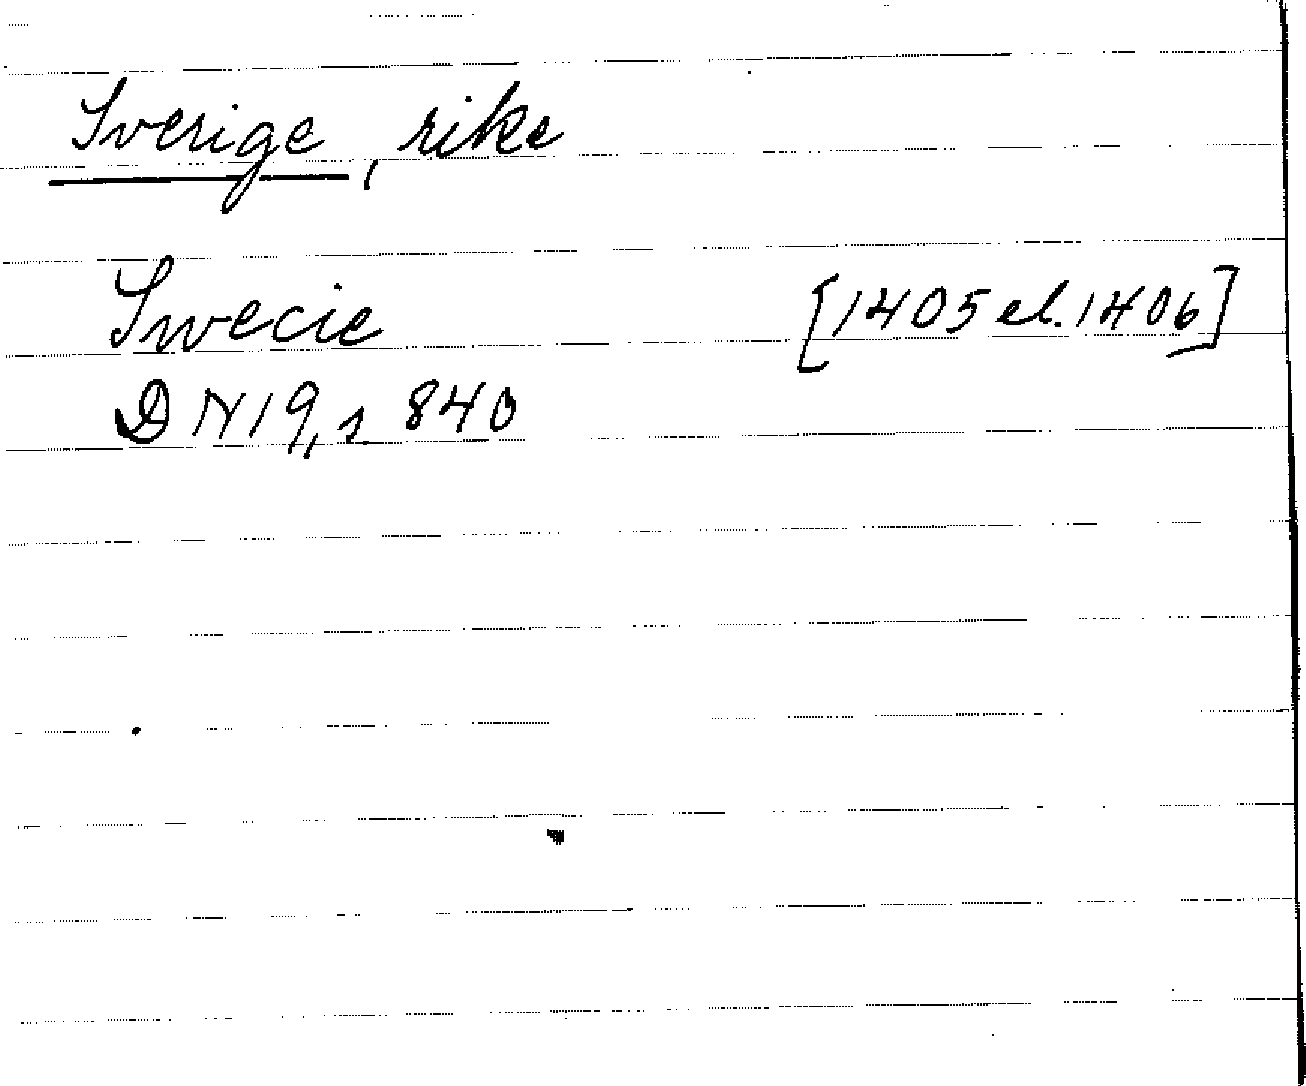 Sverige, rike
Swecie [1405 el. 1406]
DN 19, s 840